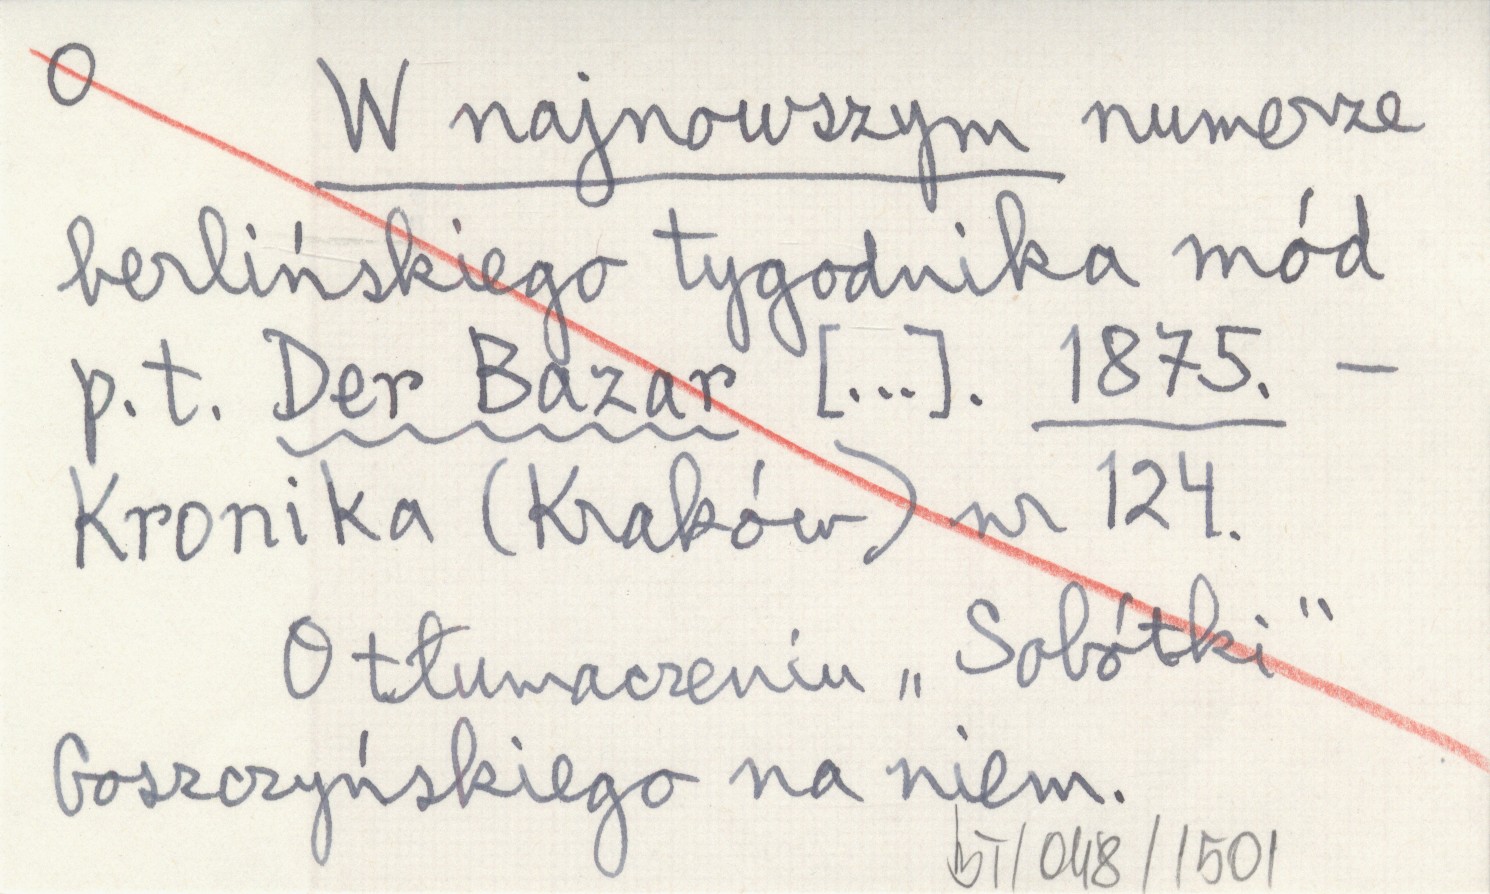 O W najnowszym numerze
berlińskiego tygodnika mód
p.t. Der Bazar [...]. 1875. —
Kronika (Kraków) nr 124.
O tłumaczeniu „Sobótki"
Goszczyńskiego na niem.
/048/1501